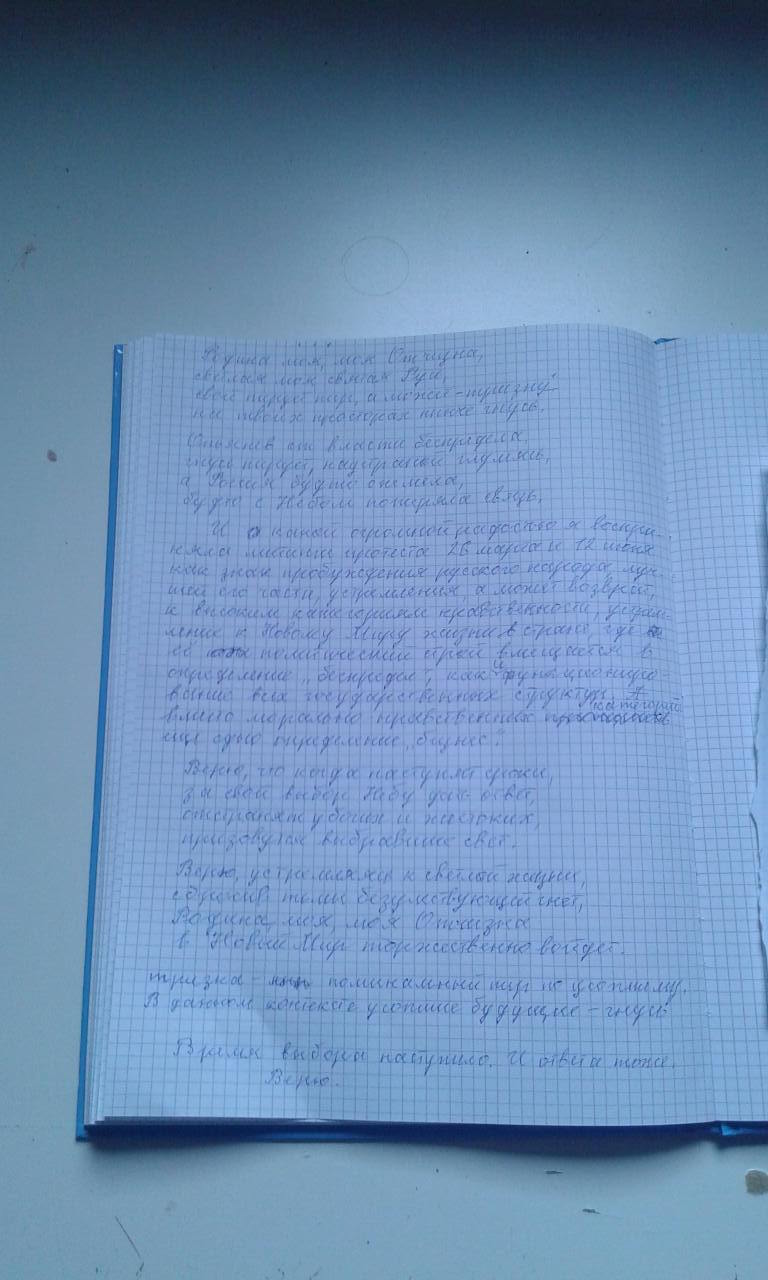 Родина моя, моя Отчизна,
светлая моя святая Русь,
свой пирует пир, а может - тризну
на твоих просторах ныне гнусь.
Опьянев от власти беспредела,
гнусь пирует, над страной глумясь,
а Россия будто онемела,
будто с Небом потеряла связь.
И с какой огромной радостью я воспри-
няла митинги протеста 26 марта и 12 июня
как знак пробуждения русского народа, луч-
шей его части, устремления, а может возврат,
к высоким категориям нравственности, устрем-
ление к Новому Миру жизни в стране, где
её политический строй вмещается в
определение „беспредел", как и функциониро-
вание всех государственных структур. А
вместо морально нравственных категорий
ещё одно определение „бизнес".
Верю, что когда наступят сроки,
за свой выбор Небу дать ответ,
отстранят убогих и жестоких,
призовутся выбравшие свет.
Верю, устремляясь к светлой жизни,
сбросив тьмы безумствующей гнёт,
Родина моя, моя Отчизна
в Новый Мир торжественно войдёт.
тризна - поминальный пир по усопшему.
В данном контексте усопшее будущее - гнусь
Время выбора наступило. И ответа тоже.
Верю.